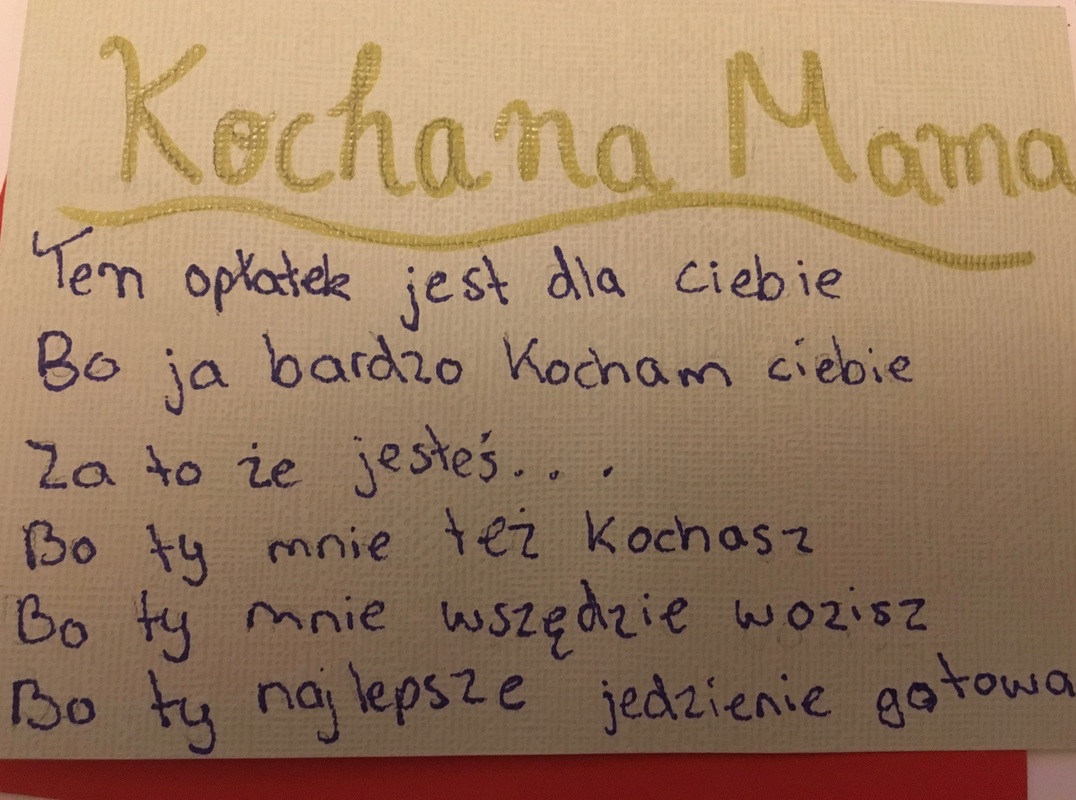 Kochana Mama
Ten opłatek jest dla ciebie
Bo ja bardzo Kocham ciebie
Za to że jesteś...
Bo ty mnie też kochasz
Bo ty mnie wszędzie wozisz
Bo ty najlepsze jedzienie gotowa